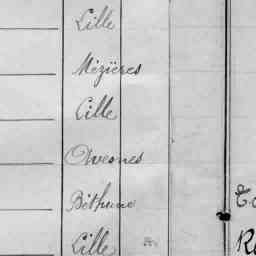 Lille
Mézières
Lille
Avesnes
Béthune
Lille